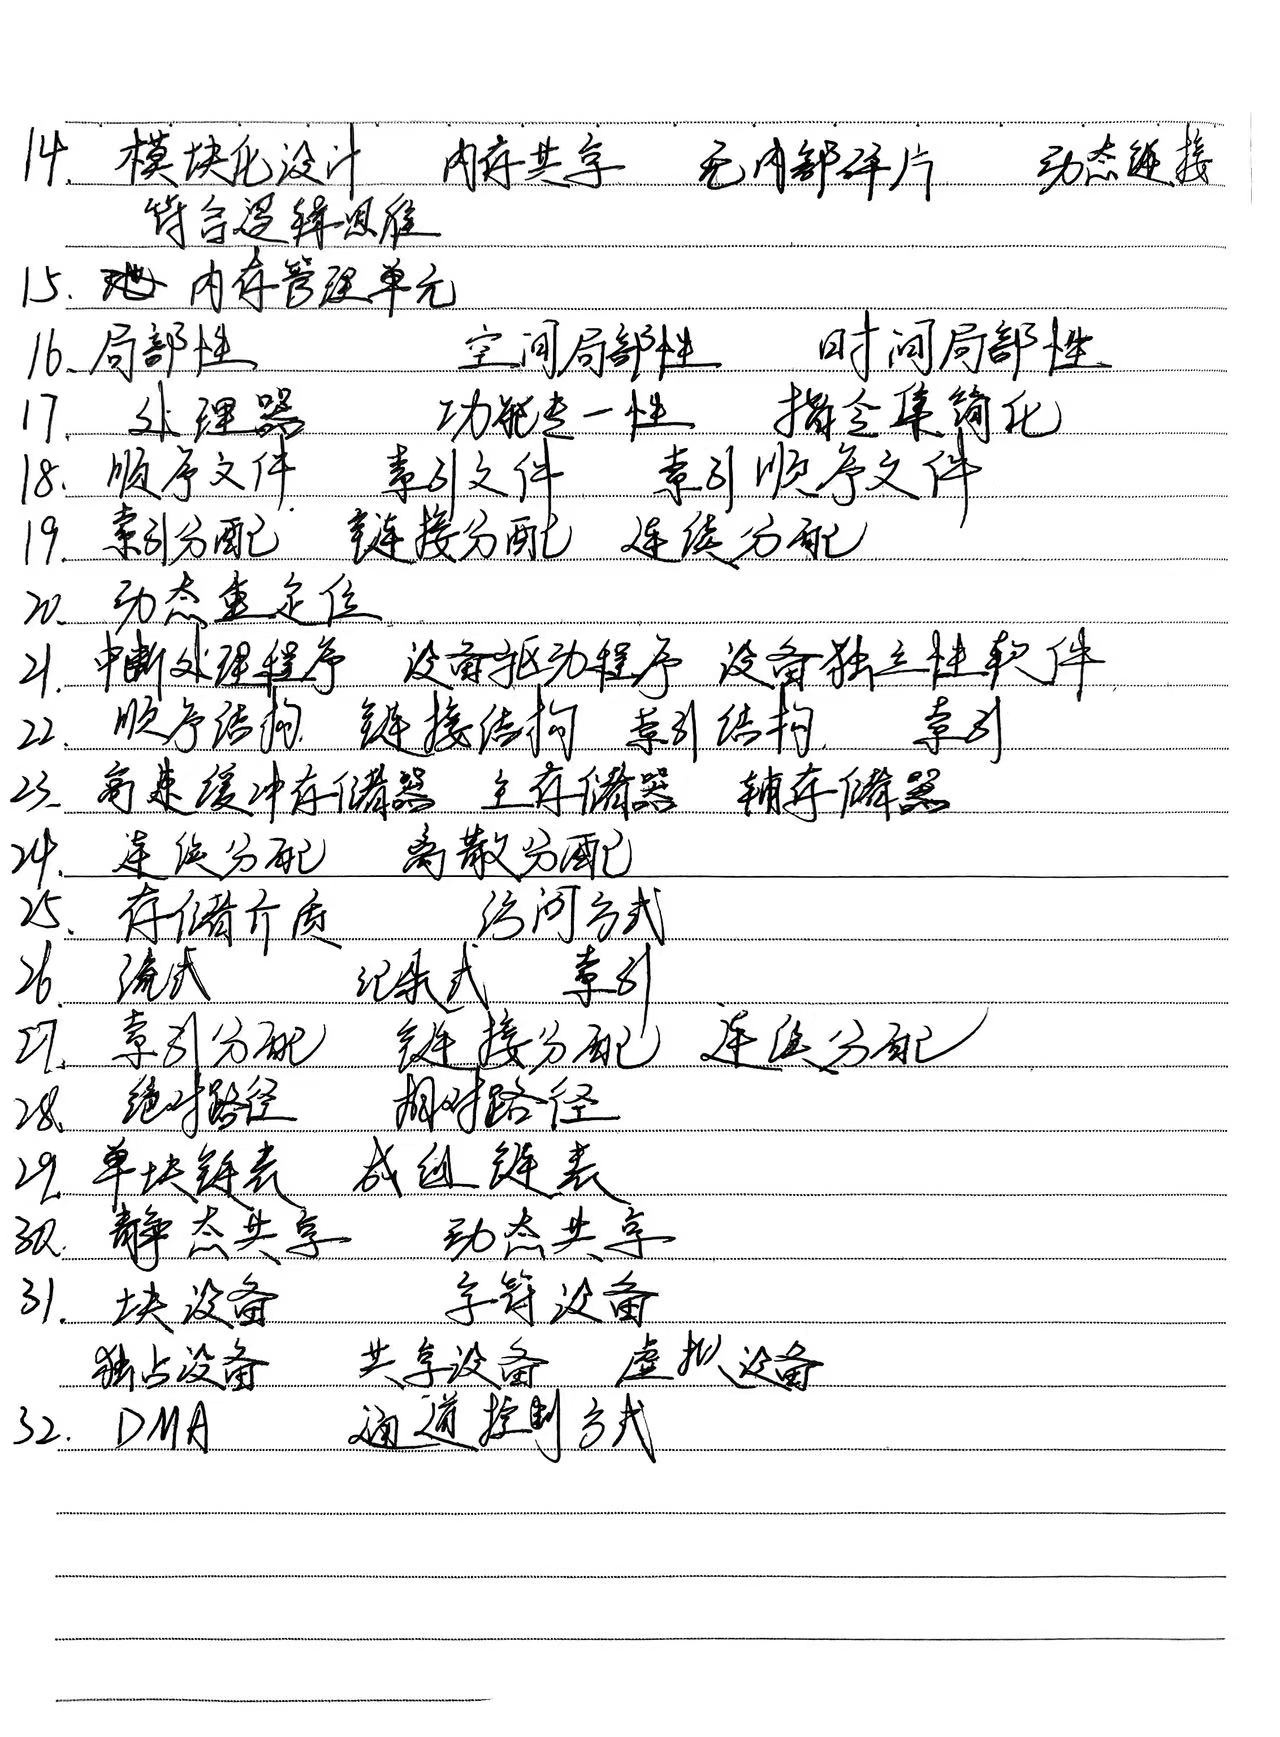 14. 模块化设计 内存共享 无内部碎片 动态链接
符合逻辑思维
15. 内存管理单元
16. 局部性 空间局部性 时间局部性
17. 处理器 功能专一性 指令集简化
18. 顺序文件 索引文件 索引顺序文件
19. 索引分配 链接分配 连续分配
20. 动态重定位
21. 中断处理程序 设备驱动程序 设备独立性软件
22. 顺序结构 链接结构 索引结构 索引
23. 高速缓冲存储器 主存储器 辅存储器
24. 连续分配 离散分配
25. 存储介质 访问方式
26. 流式 记录式 索引
27. 索引分配 链接分配 连续分配
28. 绝对路径 相对路径
29. 单块链表 成组链表
30. 静态共享 动态共享
31. 块设备 字符设备
独占设备 共享设备 虚拟设备
32. DMA 通道控制方式